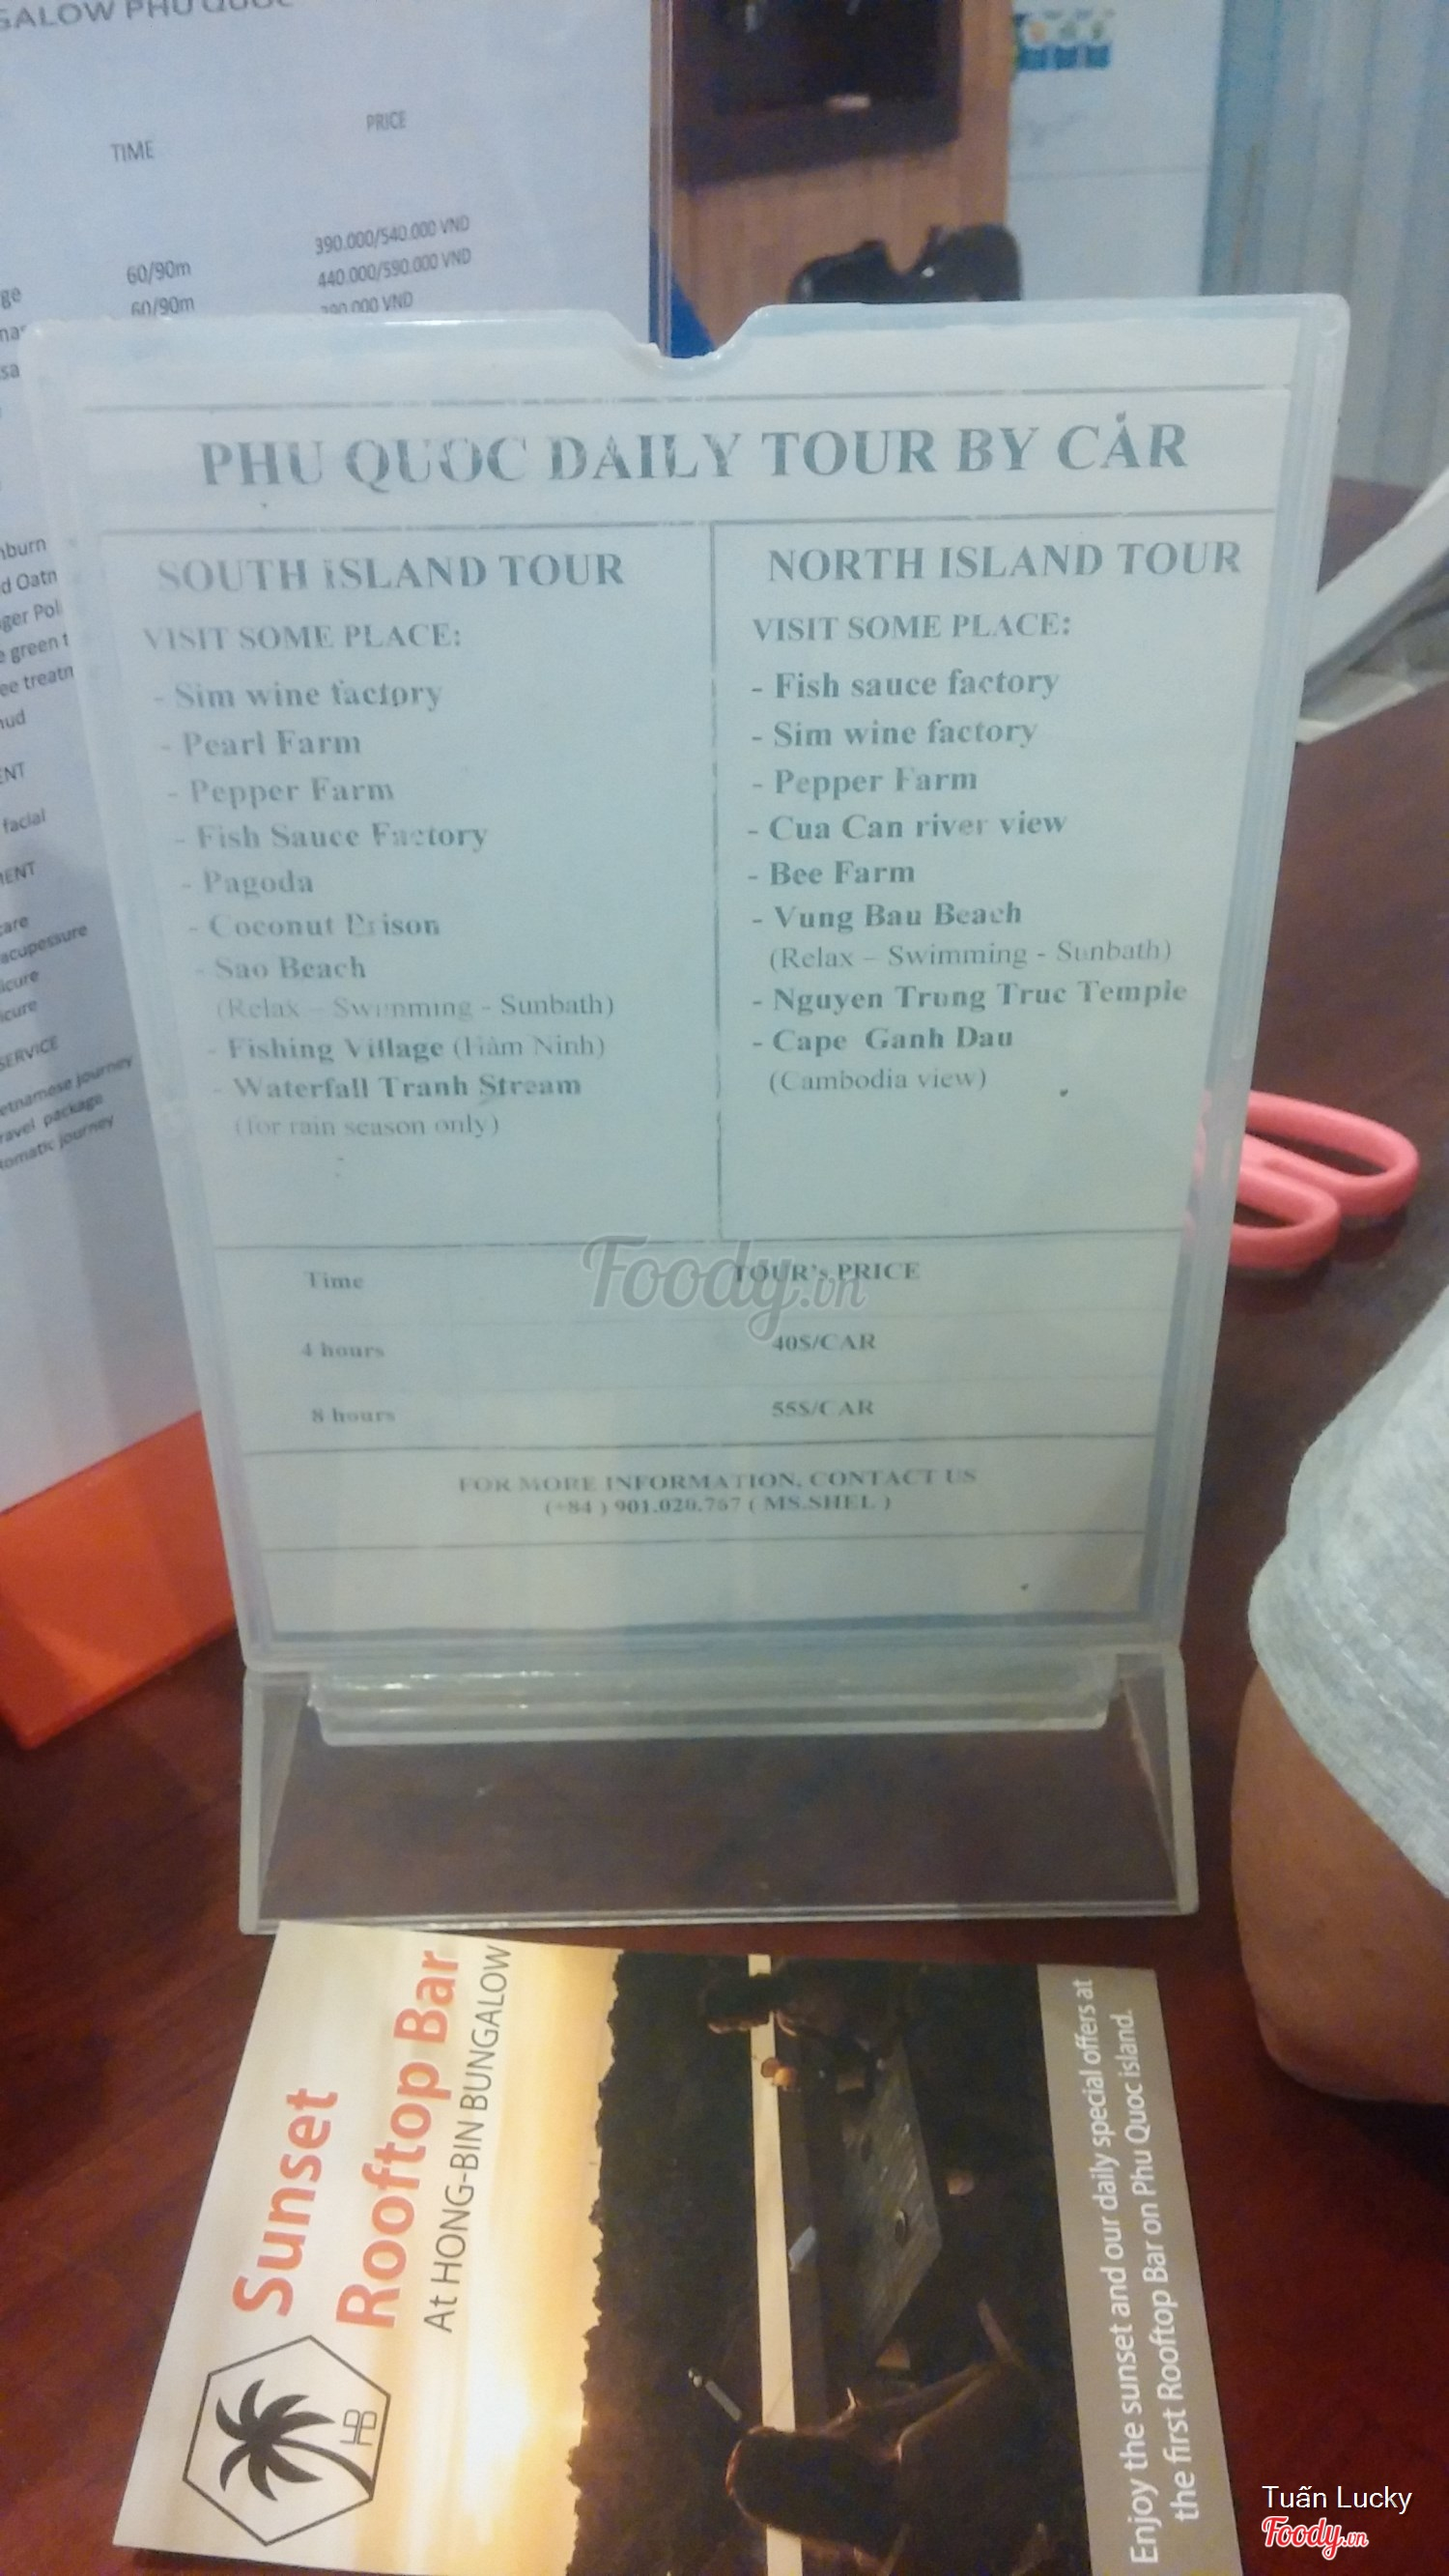 TIME
PRICE
60/90m
390.000/540.000 VND
60/90m
440.000/590.000 VND
VND
facial
SERVICE
journey
package
journey
PHU QUOC DAILY TOUR BY CAR
SOUTH ISLAND TOUR
VISIT SOME PLACE:
- Sim wine factory
- Pearl Farm
- Pepper Farm
- Fish Sauce Factory
- Pagoda
- Coconut Prison
- Sao Beach
(Relax – Swimming - Sunbath)
- Fishing Village (Hàm Ninh)
- Waterfall Tranh Stream
(for rain season only)
NORTH ISLAND TOUR
VISIT SOME PLACE:
- Fish sauce factory
- Sim wine factory
- Pepper Farm
- Cua Can river view
- Bee Farm
- Vung Bau Beach
(Relax – Swimming - Sunbath)
- Nguyen Trung Truc Temple
- Cape Ganh Dau
(Cambodia view)
Time TOUR's PRICE
4 hours 40$/CAR
8 hours 55$/CAR
FOR MORE INFORMATION, CONTACT US
(+84 ) 901.020.767 ( MS.SHEL )
Foody.vn
Sunset
Rooftop Bar
At HONG-BIN BUNGALOW
HB
Enjoy the sunset and our daily special offers at
the first Rooftop Bar on Phu Quoc island.
Tuấn Lucky
Foody.vn